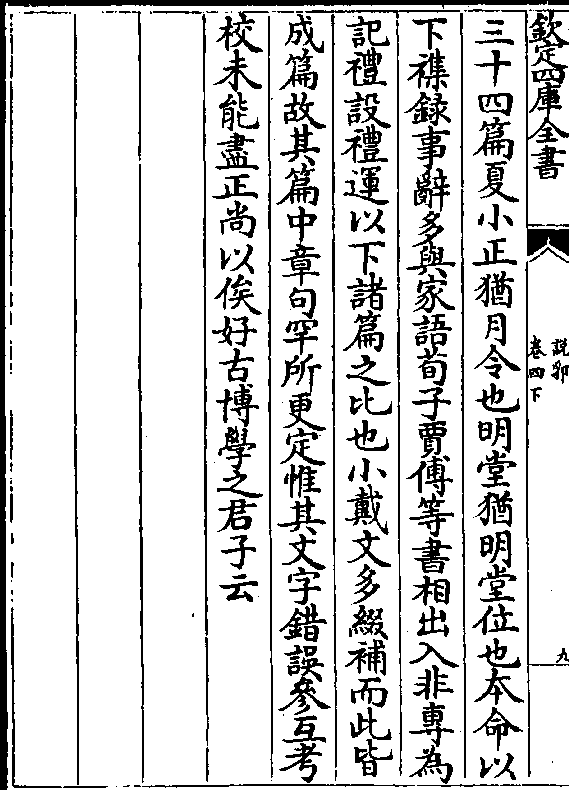 欽定四庫全書
説郛
卷四下
九
三十四篇夏小正猶月令也明堂猶明堂位也本命以
下襍録事辭多與家語荀子賈傅等書相出入非專為
記禮設禮運以下諸篇之比也小戴文多綴補而此皆
成篇故其篇中章句罕所更定惟其文字錯誤參互考
校未能盡正尚以俟好古博學之君子云